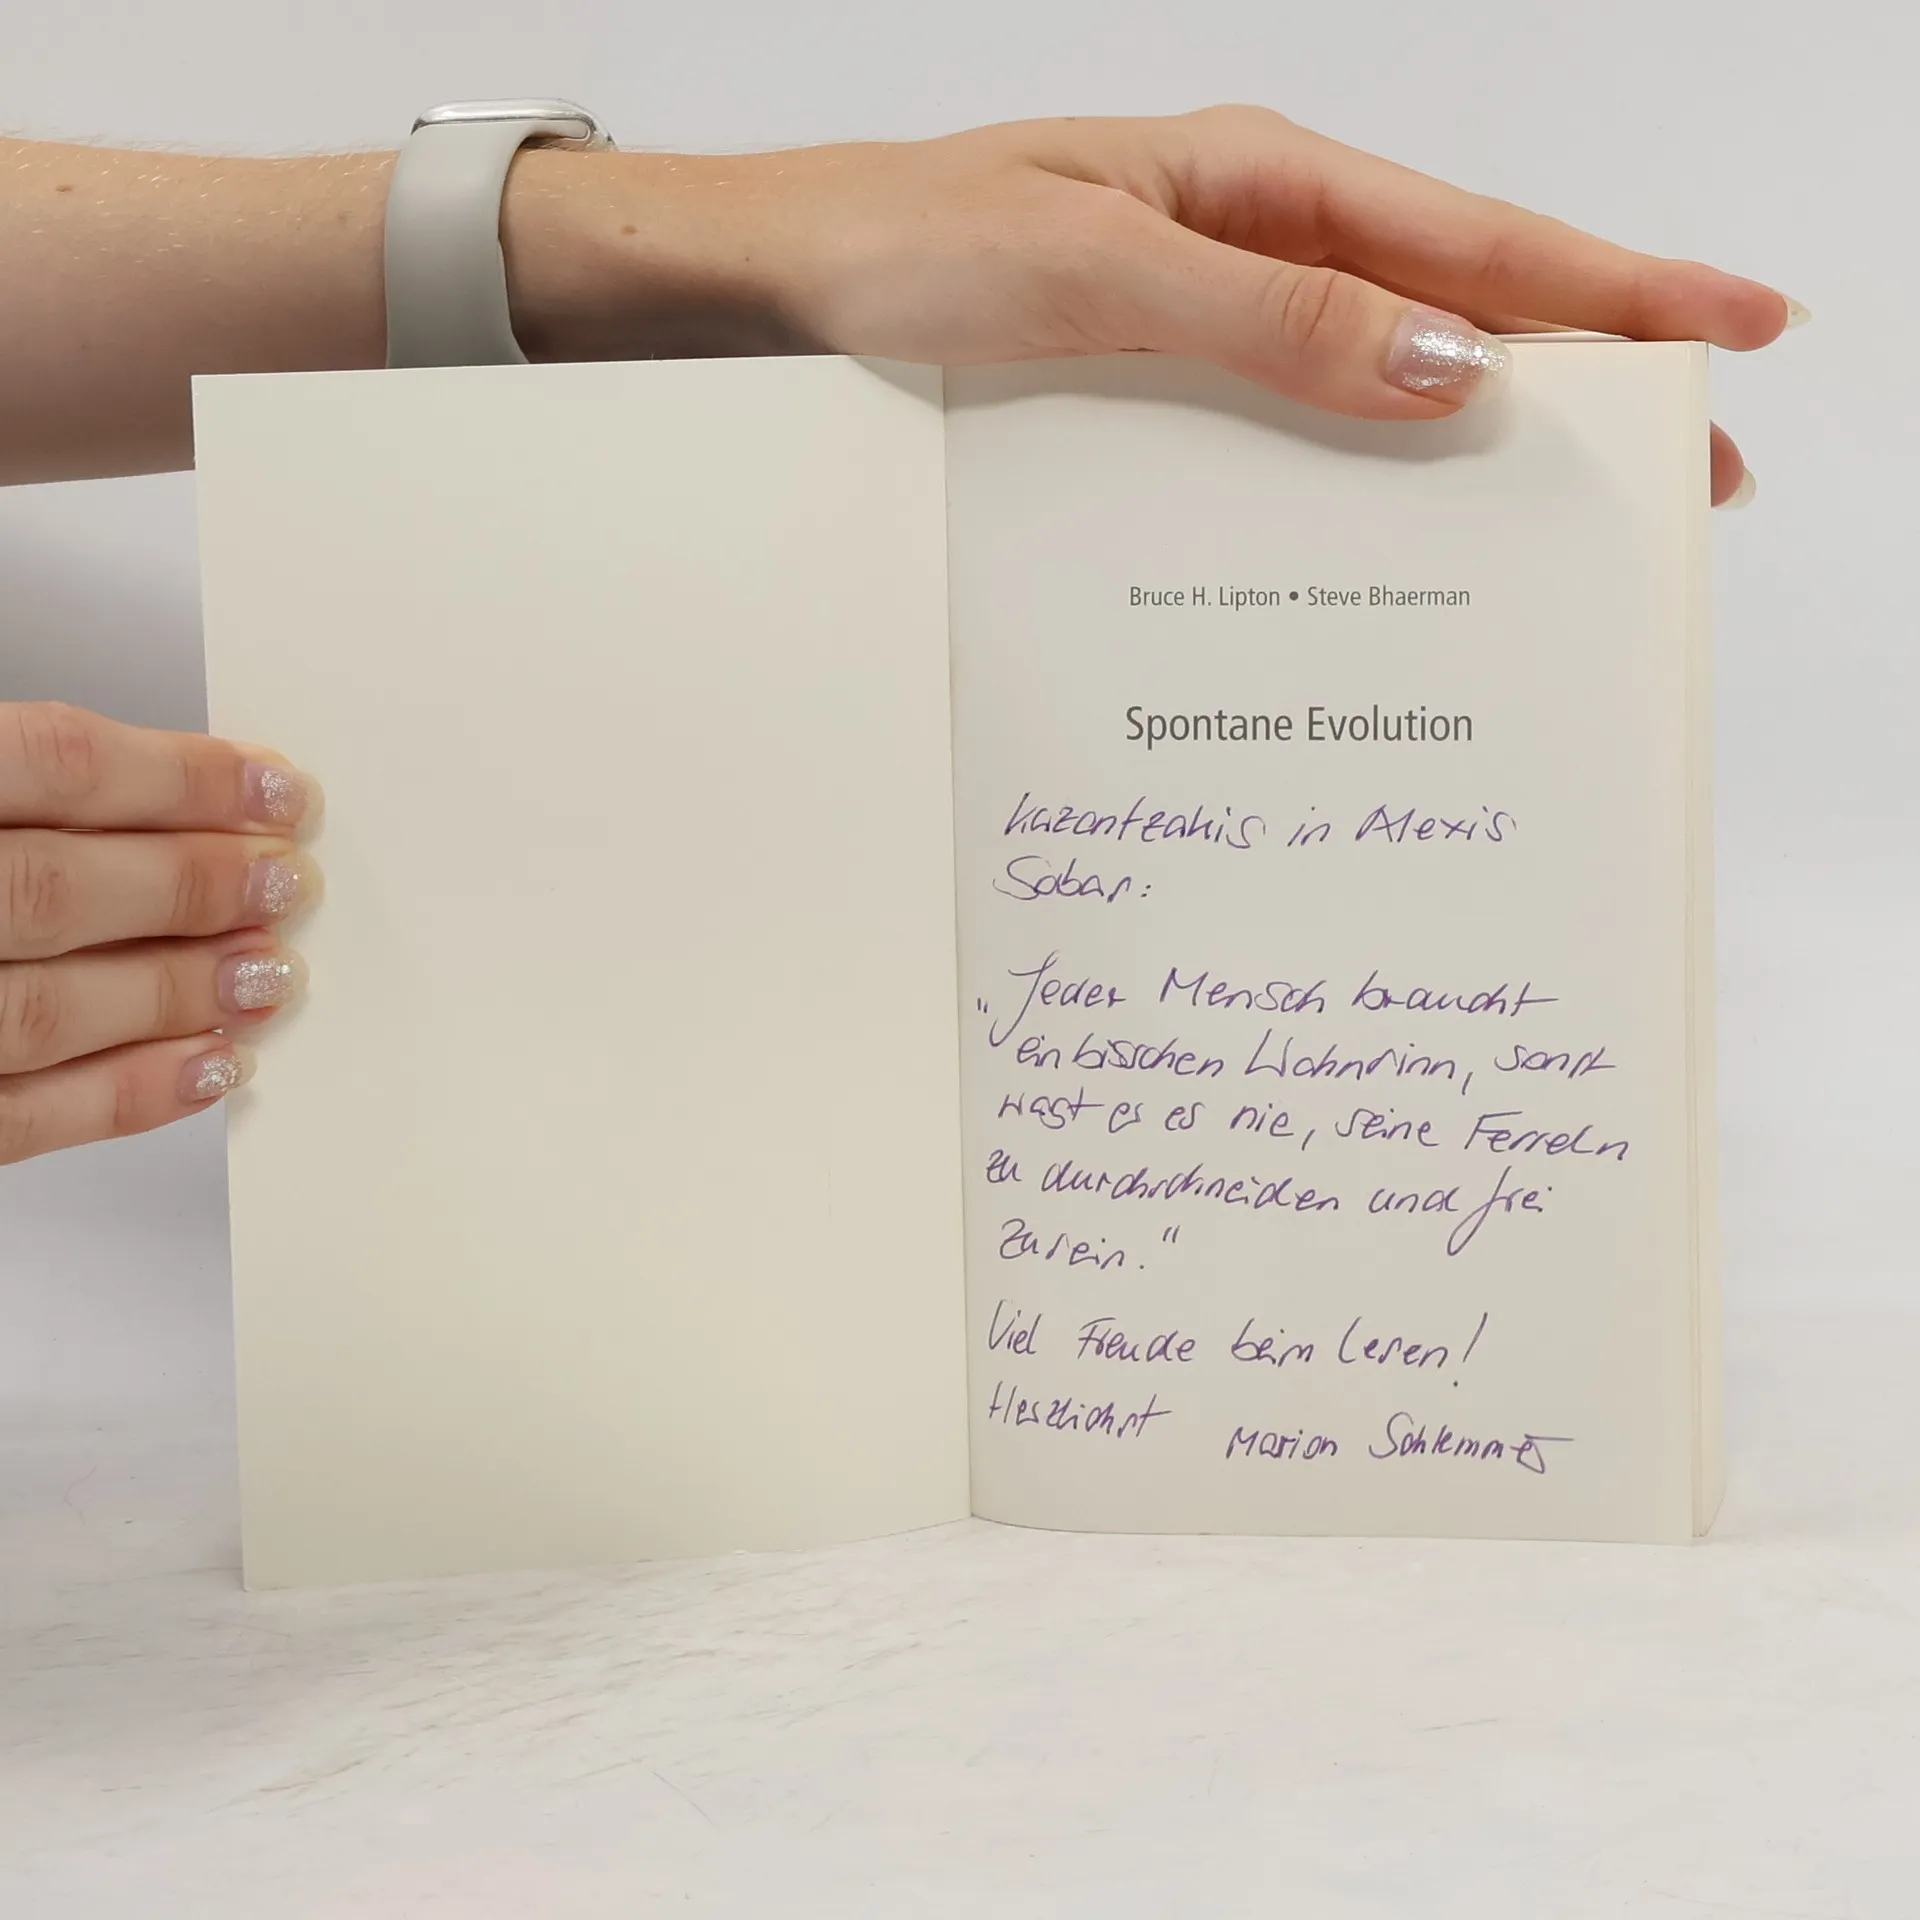 Bruce H. Lipton • Steve Bhaerman
Spontane Evolution
Kazantzakis in Alexis
Sobas:
„Jeder Mensch braucht
ein bisschen Wahnsinn, sonst
wagt es es nie, seine Fesseln
zu durchschneiden und frei
zu sein."
Viel Freude beim Lesen!
Herzlichst Marion Schlemmer